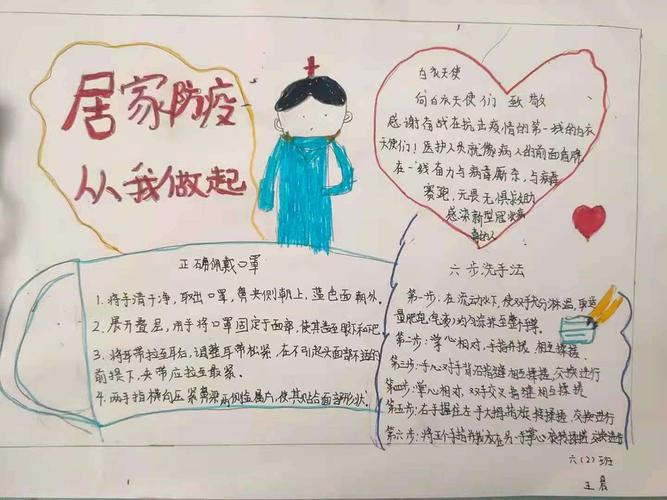 居家防疫
从我做起
白衣天使
向白衣天使们 致敬
感谢奋战在抗击疫情的第一线的白衣
天使们！医护人员就像病人的前面盾牌
在一线奋力与病毒厮杀，与病毒
赛跑，无畏无惧
感染新型冠状病
毒的人
正确佩戴口罩
1. 将手清干净，取出口罩，鼻夹侧朝上，蓝色面朝外。
2. 展开叠层，用手将口罩固定于面部，使其盖至眼下和下巴
3. 将耳带拉至耳后，调整耳带松紧，在不引起头面部不适的
前提下，夹带应拉至最紧。
4. 两手指横向压紧鼻梁两侧金属片，使其贴合面部形状。
六步洗手法
第一步：在流动水下，使双手充分淋湿，取适
量肥皂（皂液）均匀涂抹至整个手掌
第二步：掌心相对，手指并拢，相互揉搓
第三步：手心对手背沿指缝相互揉搓，交换进行
第四步：掌心相对，双手交叉指缝相互揉搓
第五步：右手握住左手大拇指旋转揉搓，交换进行
第六步：将五个手指并拢放在另一手掌心旋转揉搓，交换进行
六（2）班
王晨